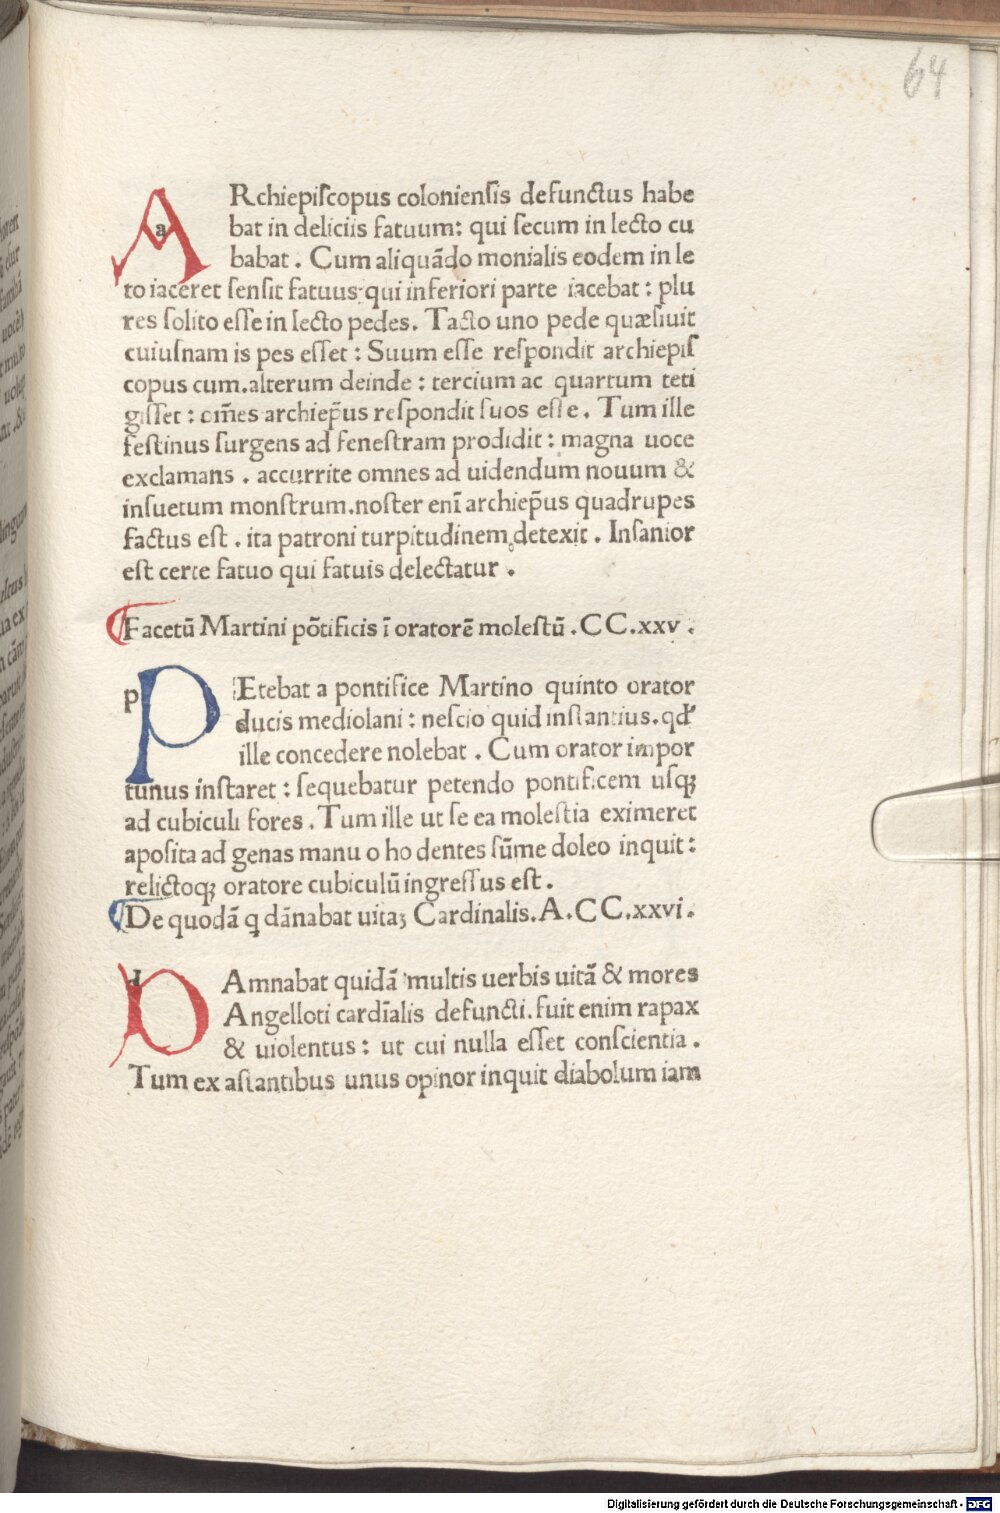 64
ARchiepiſcopus colonienſis defunctus habe
bat in deliciis fatuum: qui ſecum in lecto cu
babat . Cum aliquādo monialis eodem in le
to iaceret ſenſit fatuus qui inferiori parte iacebat : plu
res ſolito eſſe in lecto pedes. Tacto uno pede quæſiuit
cuiuſnam is pes eſſet : Suum eſſe reſpondit archiepiſ
copus cum.alterum deinde : tercium ac quartum teti
giſſet : om̄es archiep̄us reſpondit ſuos eſſe. Tum ille
feſtinus ſurgens ad feneſtram prodidit : magna uoce
exclamans . accurrite omnes ad uidendum nouum &
inſuetum monſtrum.noſter enī archiep̄us quadrupes
factus eſt . ita patroni turpitudinem detexit . Inſanior
eſt certe fatuo qui fatuis delectatur .
Facetū Martini pōtificis ī oratorē moleſtū .CC.xxv .
PEtebat a pontifice Martino quinto orator
ducis mediolani : neſcio quid inſtantius.qd'
ille concedere nolebat . Cum orator impor
tunus inſtaret : ſequebatur petendo pontificem uſqꝫ
ad cubiculi fores . Tum ille ut ſe ea moleſtia eximeret
apoſita ad genas manu o ho dentes ſūme doleo inquit :
relictoqꝫ oratore cubiculū ingreſſus eſt .
De quodā q dānabat uitaꝫ Cardinalis.A.CC.xxvi.
DAmnabat quidā multis uerbis uitā & mores
Angelloti cardīalis defuncti.fuit enim rapax
& uiolentus : ut cui nulla eſſet conſcientia .
Tum ex aſtantibus unus opinor inquit diabolum iam
Digitalisierung gefördert durch die Deutsche Forschungsgemeinschaft - DFG